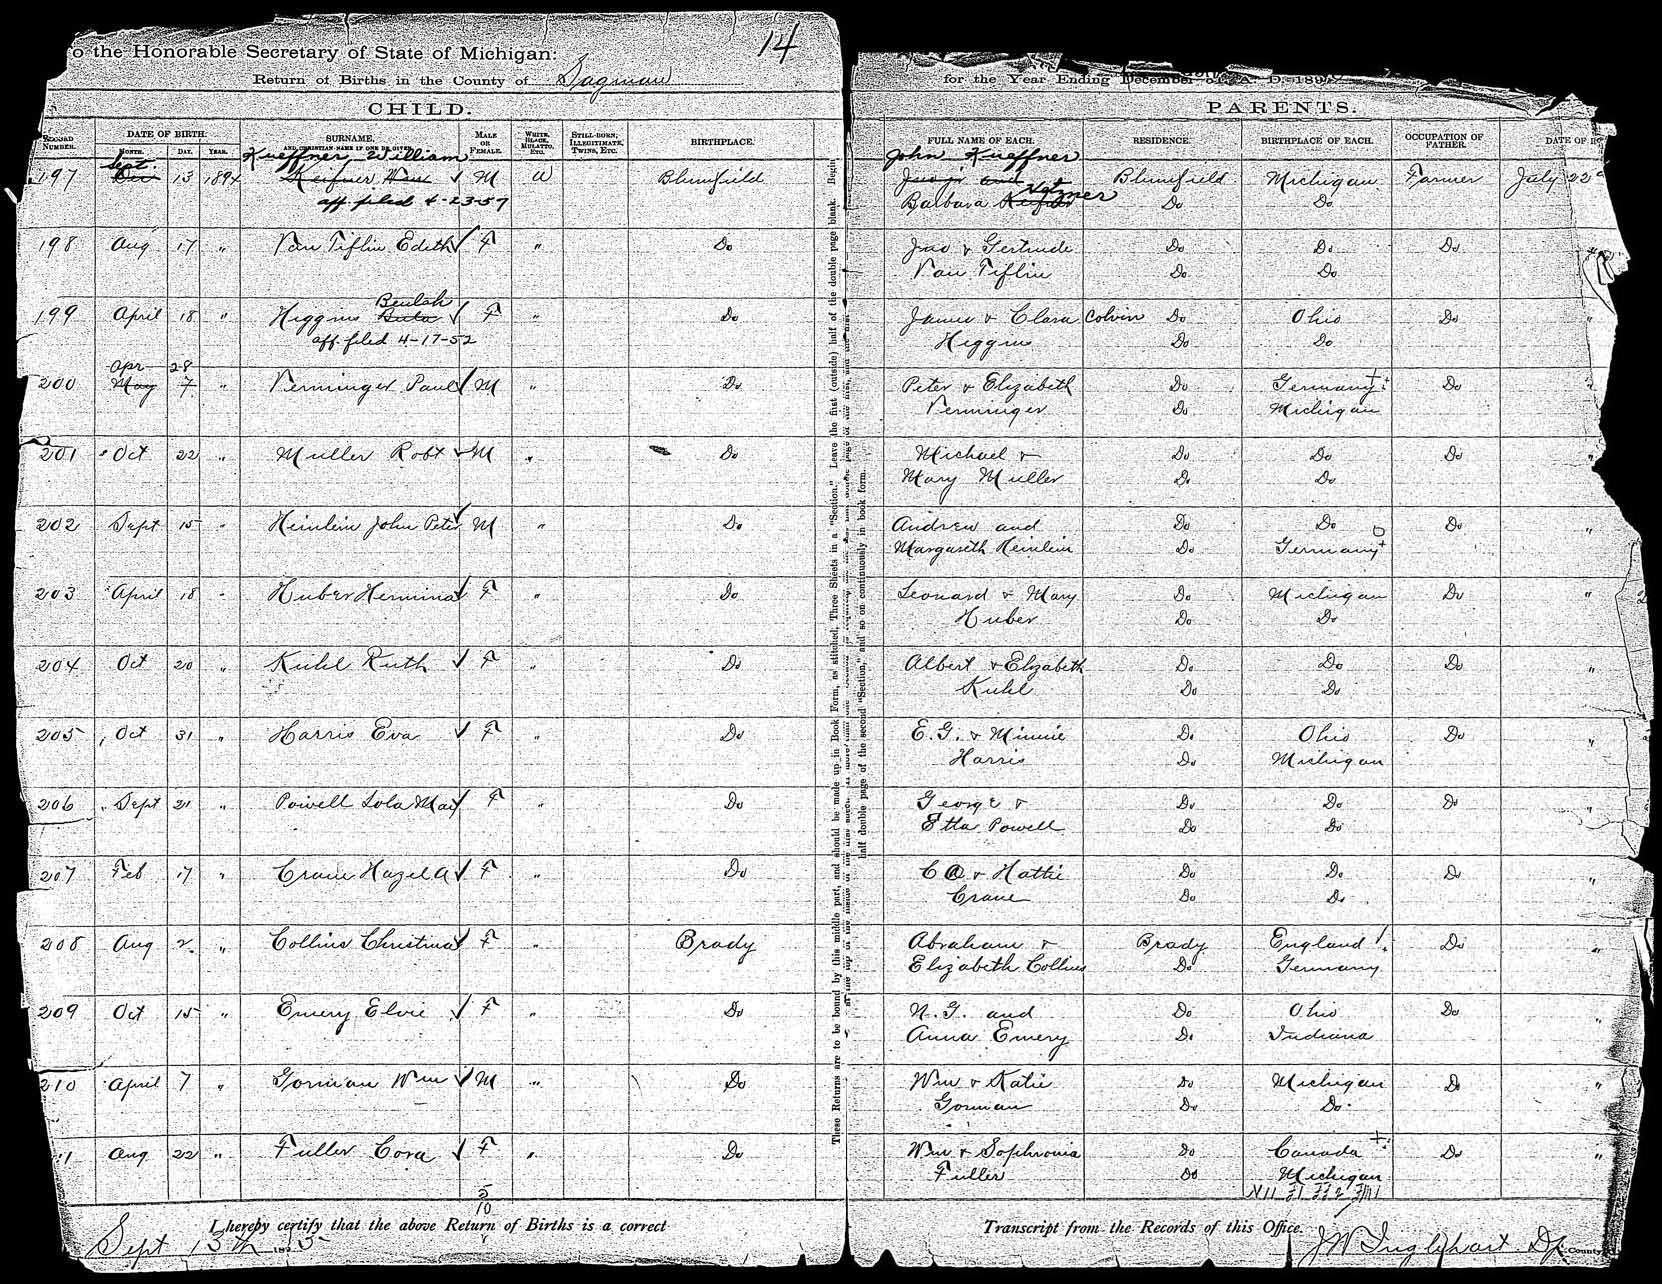 14
o the Honorable Secretary of State of Michigan:
Return of Births in the County of Saginaw for the Year Ending December A. D. 189
CHILD. PARENTS.
RECORD NUMBER. DATE OF BIRTH. MONTH. DAY. YEAR. SURNAME, AND CHRISTIAN NAME IF ONE BE GIVEN. MALE OR FEMALE. WHITE, BLACK, MULATTO, ETC. STILL-BORN, ILLEGITIMATE, TWINS, ETC. BIRTHPLACE. FULL NAME OF EACH. RESIDENCE. BIRTHPLACE OF EACH. OCCUPATION OF FATHER. DATE OF
Sept Kueffner William John Kueffner
197 Dec 13 1894 Keufner Wm ✓ M W Blumfield Jno and Blumfield Michigan Farmer July 22
aff. filed 4-23-57 Barbara Keufner Do Do
198 Aug 17 " Van Tiflin Edeth ✓ F " Do Jno & Gertrude Do Do Do
Van Tiflin Do Do
Beulah
199 April 18 " Higgins Bula ✓ F " Do James & Clara Colvin Do Ohio Do "
aff. filed 4-17-52 Higgins Do Do
Apr 28
200 May 7 " Verminger Paul ✓ M " Do Peter & Elizabeth Do Germany Do "
Verminger Do Michigan
201 Oct 22 " Muller Robt ✓ M " Do Michael & Do Do Do "
Mary Muller Do Do
202 Sept 15 " Heinlein John Peter ✓ M " Do Andrew and Do Do Do "
Margareth Heinlein Do Germany
203 April 18 " Huber Hermina ✓ F " Do Leonard & Mary Do Michigan Do "
Huber Do Do
204 Oct 20 " Kuhl Ruth ✓ F " Do Albert & Elizabeth Do Do Do "
Kuhl Do Do
205 Oct 31 " Harris Eva ✓ F " Do E.G. & Minnie Do Ohio Do "
Harris Do Michigan
206 Sept 21 " Powell Lola May ✓ F " Do George & Do Do Do "
Etta Powell Do Do
207 Feb 17 " Crane Hazel A ✓ F " Do C A & Hattie Do Do Do "
Crane Do Do
208 Aug 2 " Collins Christina ✓ F " Brady Abraham & Brady England Do "
Elizabeth Collins Do Germany
209 Oct 15 " Emery Elvie ✓ F " Do N. G. and Do Ohio Do "
Anna Emery Do Indiana
210 April 7 " Gorman Wm ✓ M " Do Wm & Katie Do Michigan Do "
Gorman Do Do
11 Aug 22 " Fuller Cora ✓ F " Do Wm & Sophronia Do Canada Do "
Fuller Do Michigan
5
10
I hereby certify that the above Return of Births is a correct Transcript from the Records of this Office.
Sept 13th 1895 J W Inglehart Dp County
These Returns are to be bound by this middle part, and should be made up in Book Form, as stitched, Three Sheets in a "Section." Leave the first (outside) half of the double page blank. Begin
half double page of the second "Section," and so on continuously in book form.